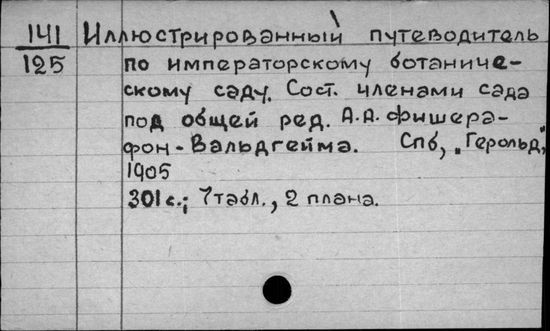 141 Иллюстрированный путеводитель
125 по императорскому ботаниче-
скому саду. Сост. членами сада
под общей ред. А.А. Фишера-
фон-Вальдгейма. Спб, „Герольд,"
1905
301 с.; 7 табл., 2 плана.